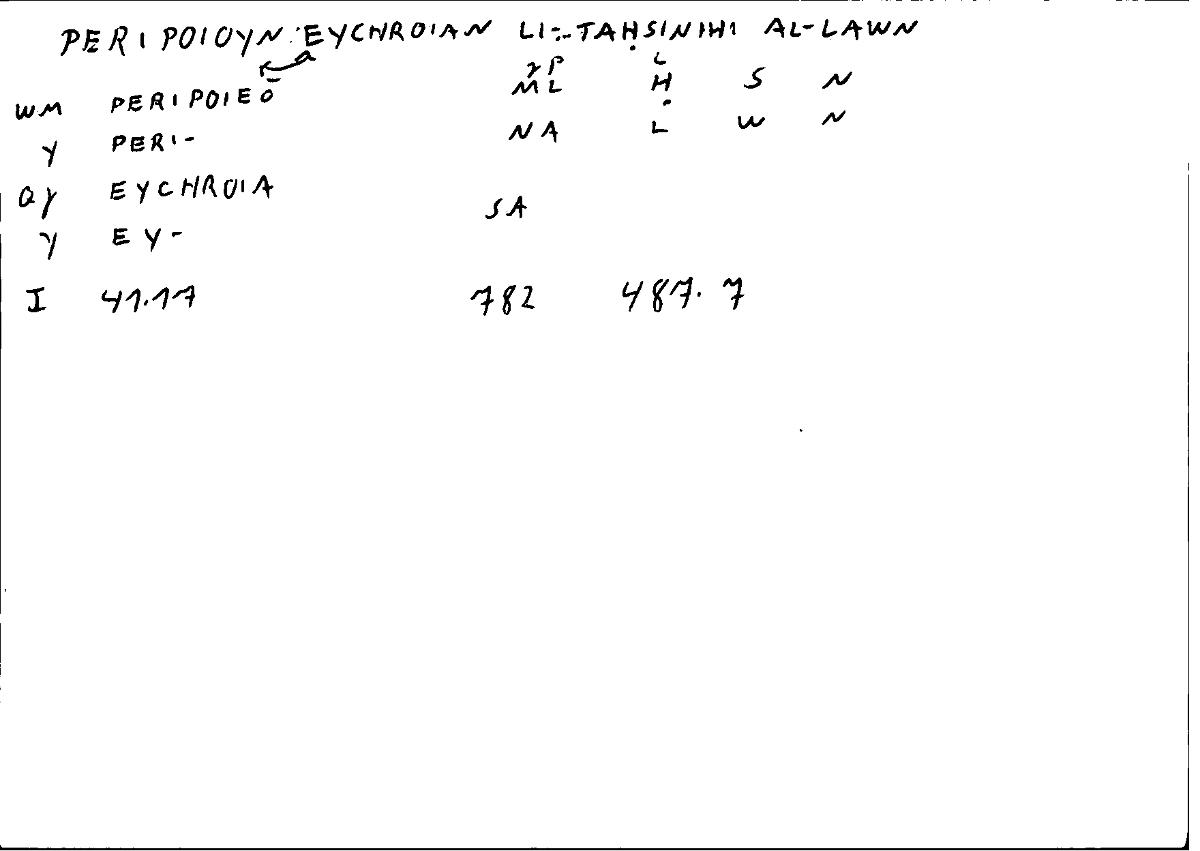 PERIPOIOYN EYCHROIAN LI-TAḤSINIHI AL-LAWN
WM PERIPOIEŌ ML Ḥ S N
Y PERI- NA L W N
QY EYCHROIA SA
Y EY-
I 41.17 782 487.7